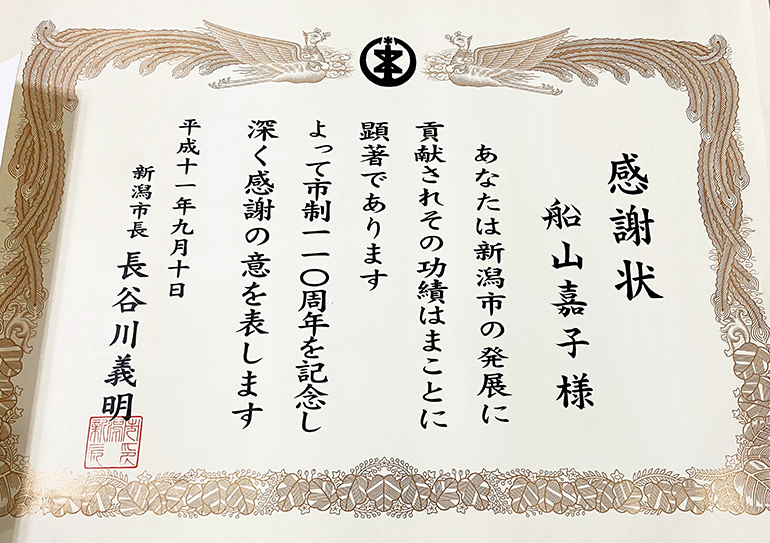 感謝状
船山嘉子様
あなたは新潟市の発展に
貢献されその功績はまことに
顕著であります
よって市制一一〇周年を記念し
深く感謝の意を表します
平成十一年九月十日
新潟市長 長谷川義明